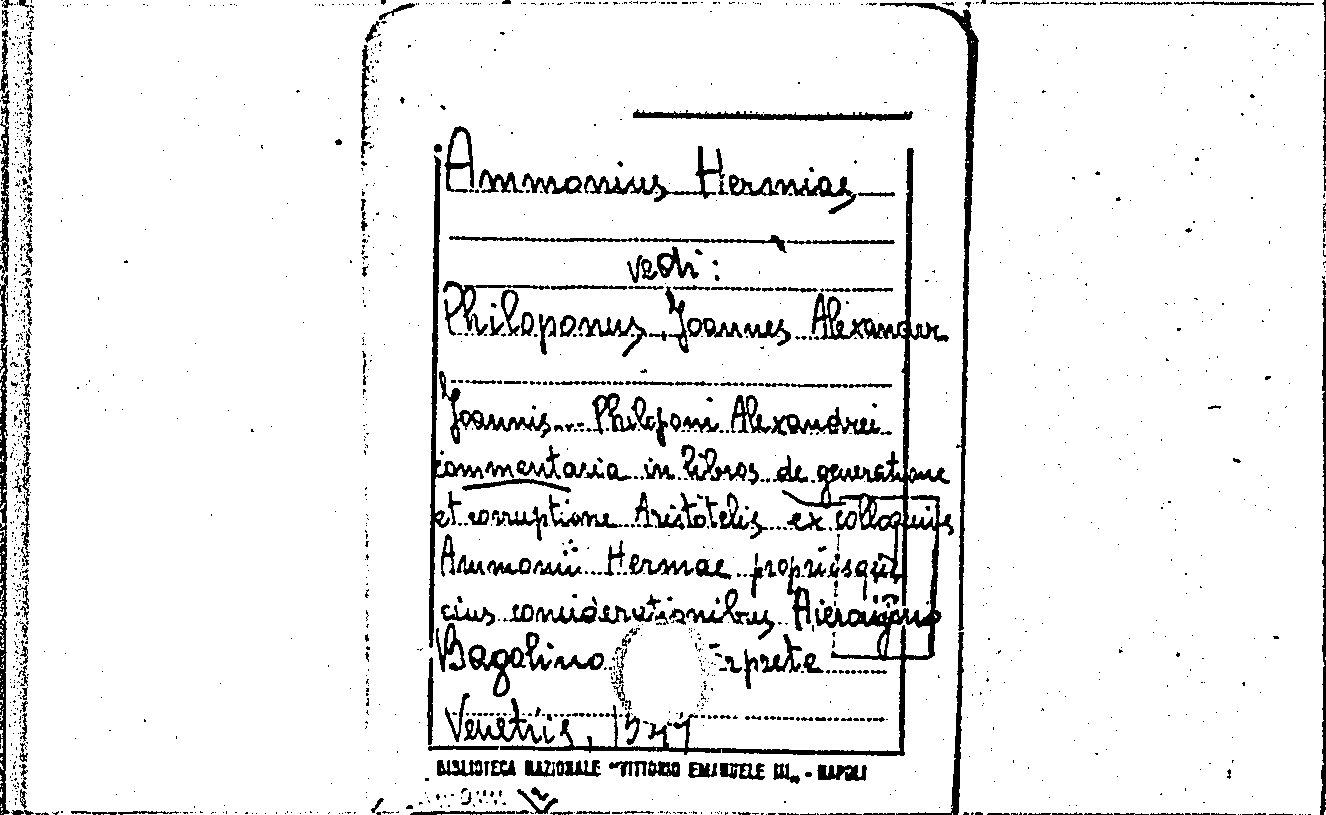 Ammonius Hermiae
vedi:
Philoponus, Joannes Alexander
Joannis... Philoponi Alexandrei
commentaria in libros de generatione
et corruptione Aristotelis ex colloquiis
Ammonii Hermae propriisque
eius considerationibus Hieronymo
Bagolino rprete
Venetiis,
BIBLIOTECA NAZIONALE "VITTORIO EMANUELE III" - NAPOLI